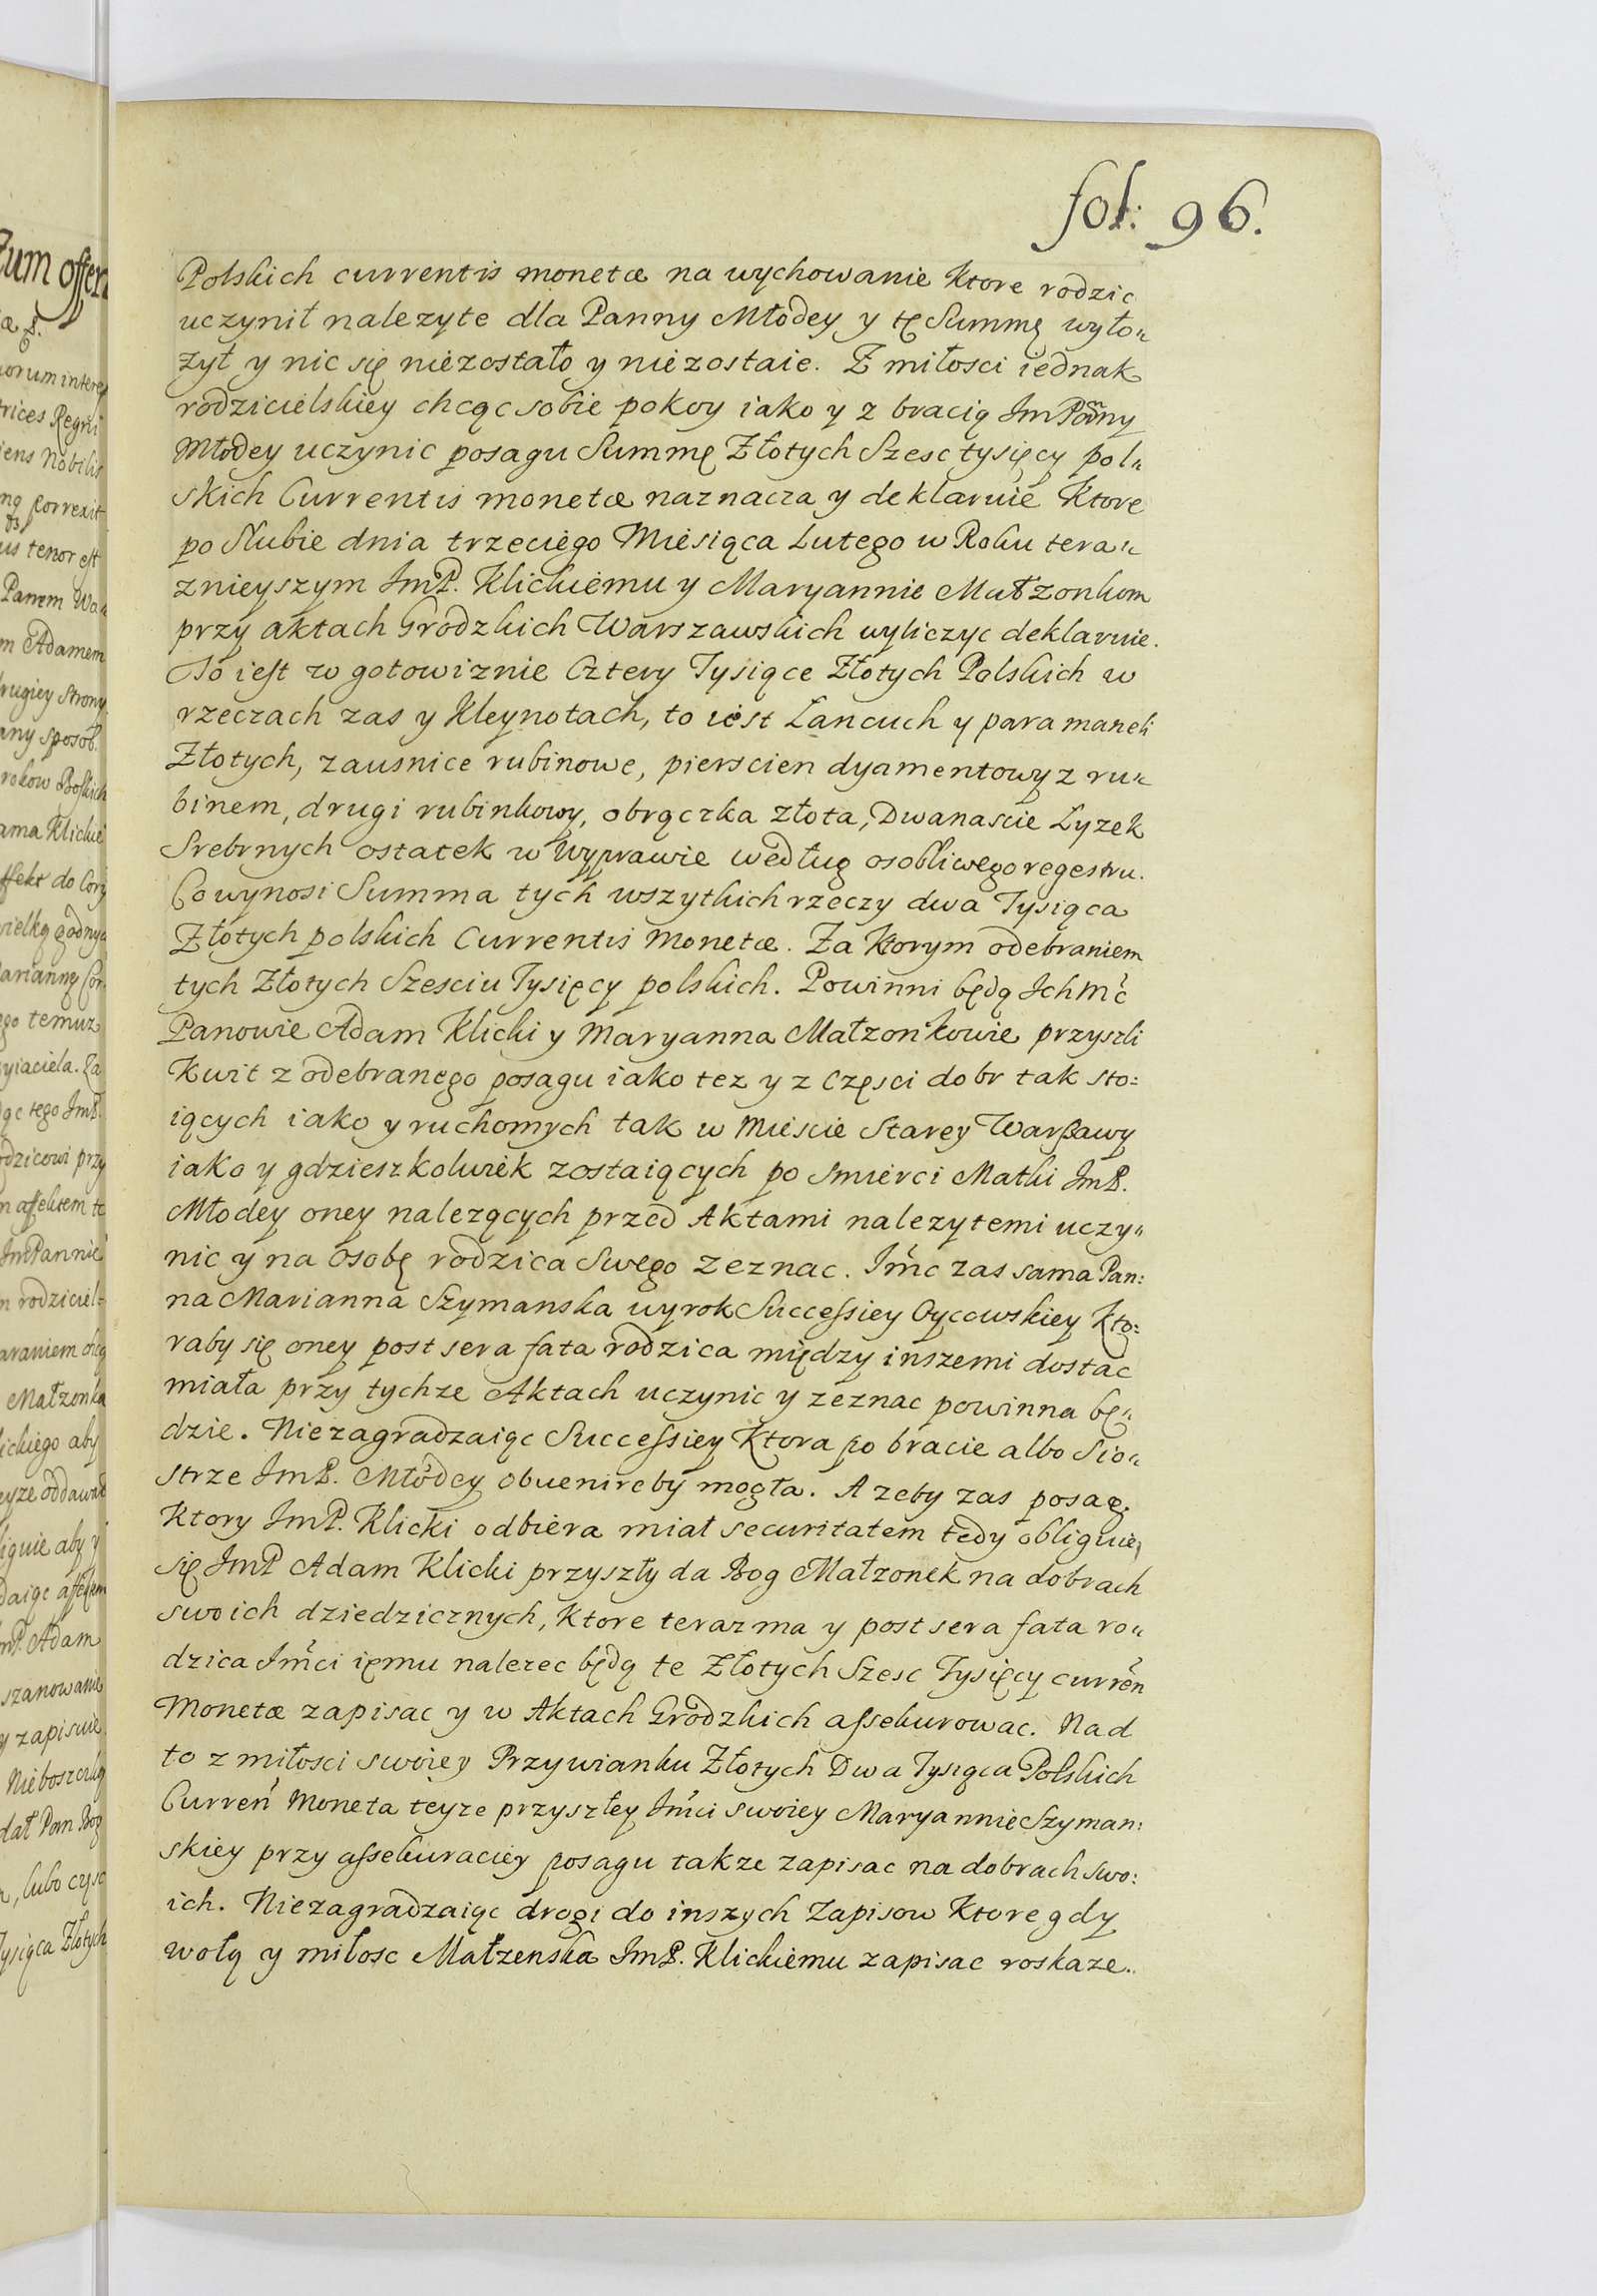 fol: 96.
Polskich currentis monetæ na wychowanie Ktore rodzic
uczynił nalezyte dla Panny Młodey y tę Summę wyło„
zył y nic się niezostało y niezostaie. Z miłosci iednak
rodzicielskiey chcąc sobie pokoy iako y z bracią Im Panny
Młodey uczynic posagu Summę Złotych Szesc tysięcy pol„
skich Currentis monetæ naznacza y deklaruie Ktore
po Slubie dnia trzeciego Miesiąca Lutego w Roku tera„
znieyszym ImP. Klickiemu y Maryannie Małzonkom
przy aktach Grodzkich Warszawskich wyliczyc deklaruie.
To iest w gotowiznie Cztery Tysiące Złotych Polskich w
rzeczach zas y Kleynotach, to iest Lancuch y para maneli
Złotych, zausnice rubinowe, pierscien dyamentowy z ru„
binem, drugi rubinkowy, obrączka złota, Dwanascie Lyzek
Srebrnych ostatek w Wyprawie według osobliwego regestru.
Co wynosi Summa tych wszytkich rzeczy dwa Tysiąca
Złotych polskich Currentis Monetæ. Za Ktorym odebraniem
tych Złotych Szesciu Tysięcy polskich. Powinni będą Ichmć
Panowie Adam Klicki y Maryanna Małzonkowie przyszli
Kwit z odebranego posagu iako tez y z Częsci dobr tak sto:
iących iako y ruchomych tak w Miescie Starey Warßawy
iako y gdzieszkolwiek zostaiących po Smierci Matki ImP.
Młodey oney nalezących przed Aktami nalezytemi uczy„
nic y na osobę rodzica Swego zeznac. Imć zas sama Pan:
na Marianna Szymanska wyrok Successiey Oycowskiey Kto:
raby się oney post sera fata rodzica między inszemi dostac
miała przy tychze Aktach uczynic y zeznac powinna bę„
dzie. Niezagradzaiąc Successiey Ktora po bracie albo Sio„
strze ImP. Młodey obuenireby mogła. A zeby zas posag
Ktory ImP. Klicki odbiera miał securitatem tedy obliguie
się ImP Adam Klicki przyszły da Bog Małzonek na dobrach
swoich dziedzicznych, Ktore teraz ma y post sera fata ro„
dzica Imći iemu nalezec będą te Złotych Szesc Tysięcy currēn
Monetæ zapisac y w Aktach Grodzkich assekurowac. Nad
to z miłosci swoiey Przywianku Złotych Dwa Tysiąca Polskich
Curreń Moneta teyze przyszłey Imći swoiey Maryannie Szyman:
skiey przy assekuraciey posagu takze zapisac na dobrach swo:
ich. Niezagradzaiąc drogi do inszych Zapisow Ktore gdy
wolą y miłosc Małzenska ImP. Klickiemu zapisac roskaze.